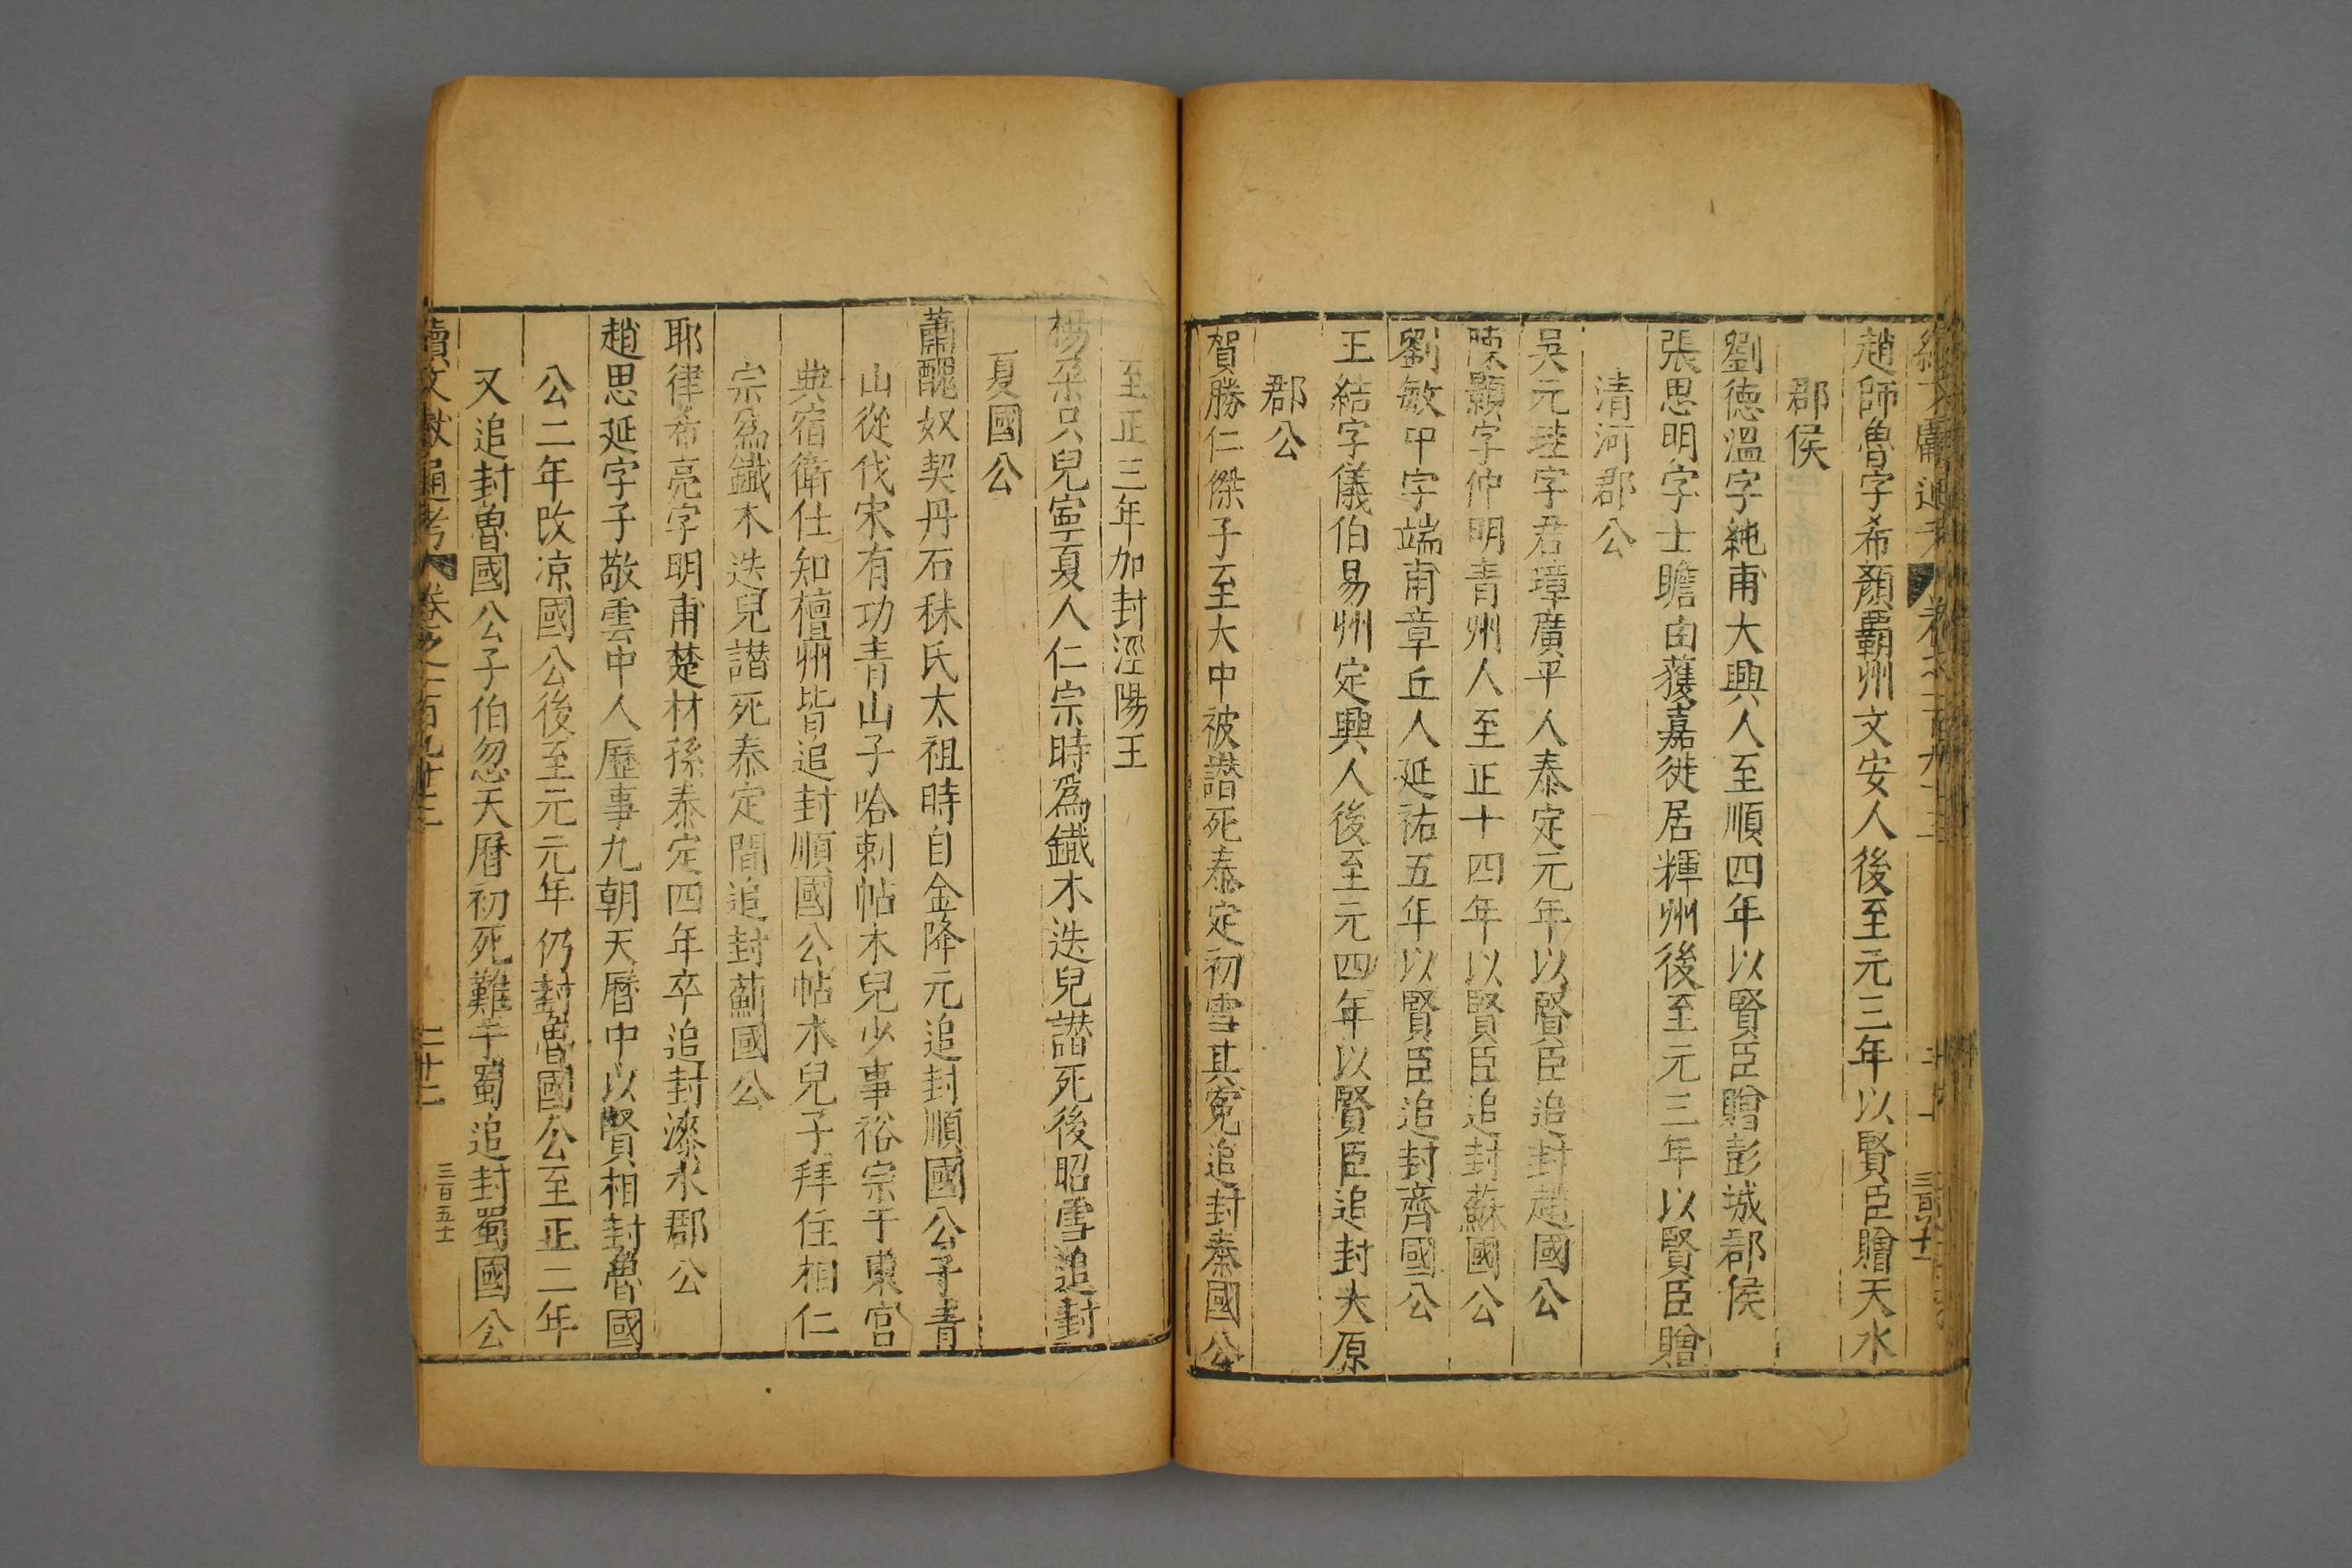 趙師魯字希顏覇州文安人後至元三年以賢臣贈天水
郡侯
劉德溫字純甫大興人至順四年以賢臣贈彭城郡侯
張思明字士瞻由獲嘉徙居輝州後至元三年以賢臣贈
清河郡公
吳元珪字君璋廣平人泰定元年以賢臣追封趙國公
陳顥字仲明青州人至正十四年以賢臣追封薊國公
劉敏中字端甫章丘人延祐五年以賢臣追封齊國公
王結字儀伯易州定興人後至元四年以賢臣追封太原
郡公
賀勝仁傑子至大中被譖死泰定初雪其寃追封秦國公
至正三年加封涇陽王
楊朵只兒寧夏人仁宗時爲鐵木迭兒譖死後昭雪追封
夏國公
蕭醜奴契丹石秣氏太祖時自金降元追封順國公子青
山從伐宋有功青山子哈剌帖木兒少事裕宗于東宮
典宿衛仕知檀州皆追封順國公帖木兒子拜住相仁
宗爲鐵木迭兒譖死泰定間追封薊國公
耶律希亮字明甫楚材孫泰定四年卒追封漆水郡公
趙思延字子敬雲中人歷事九朝天曆中以賢相封魯國
公二年改凉國公後至元元年仍封魯國公至正二年
又追封魯國公子伯忽天曆初死難于蜀追封蜀國公
續文獻通考 卷之一百九十三 二十二 三百五十